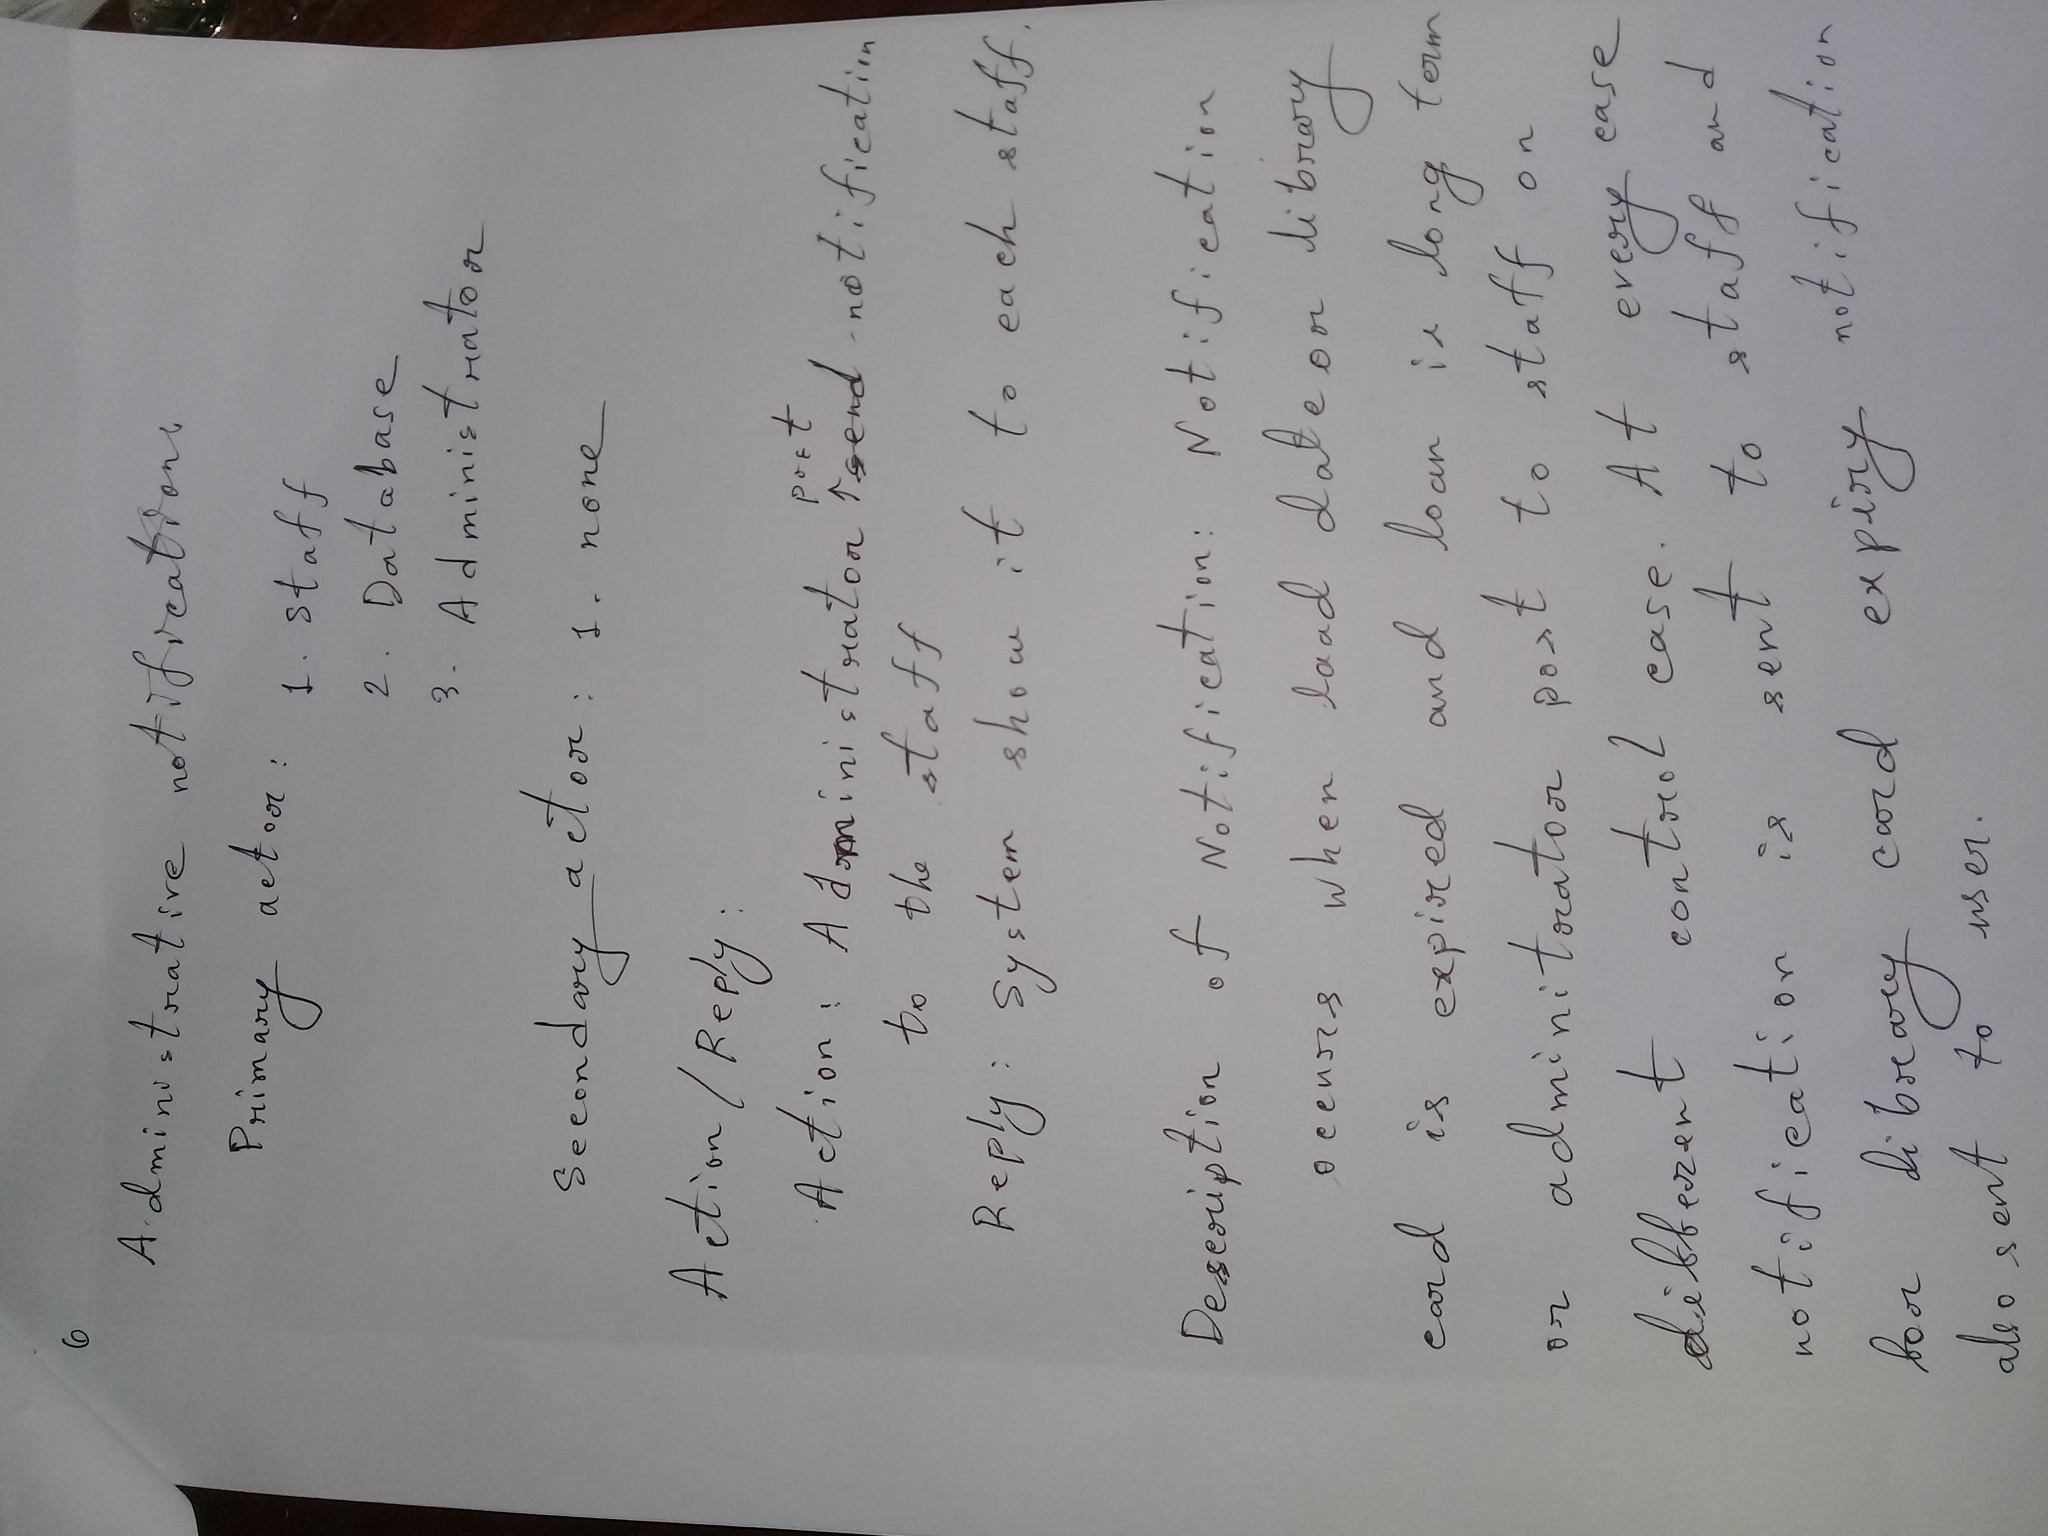 6
Administrative notifications
Primary actor:
1. Staff
2. Database
3. Administrator
Secondary actor: 1. none
Action / Reply:
Action: Administrator post send notification
to the staff
Reply: System show it to each staff.
Description of Notification: Notification
occurs when load date or library
card is expired and loan is long term
or adminitrator post to staff on
different control case. At every case
notification is sent to staff and
for library card expiry notification
also sent to user.